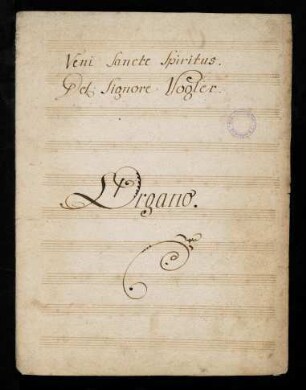 Veni Sancte Spiritus.
Del Signore Vogler.
Organo.